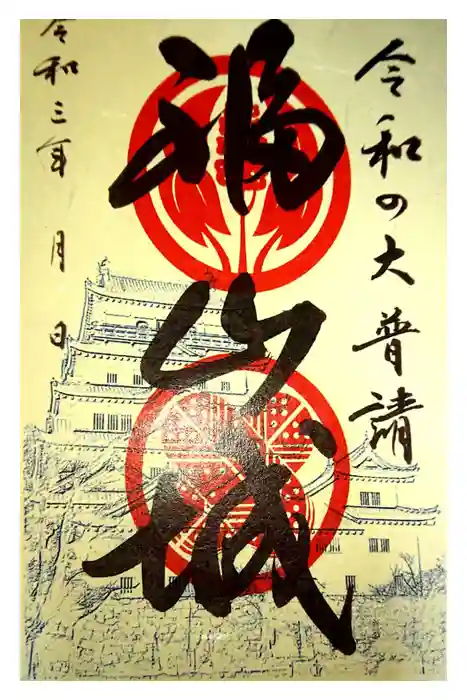 令和の大普請
福山城
令和三年 月 日